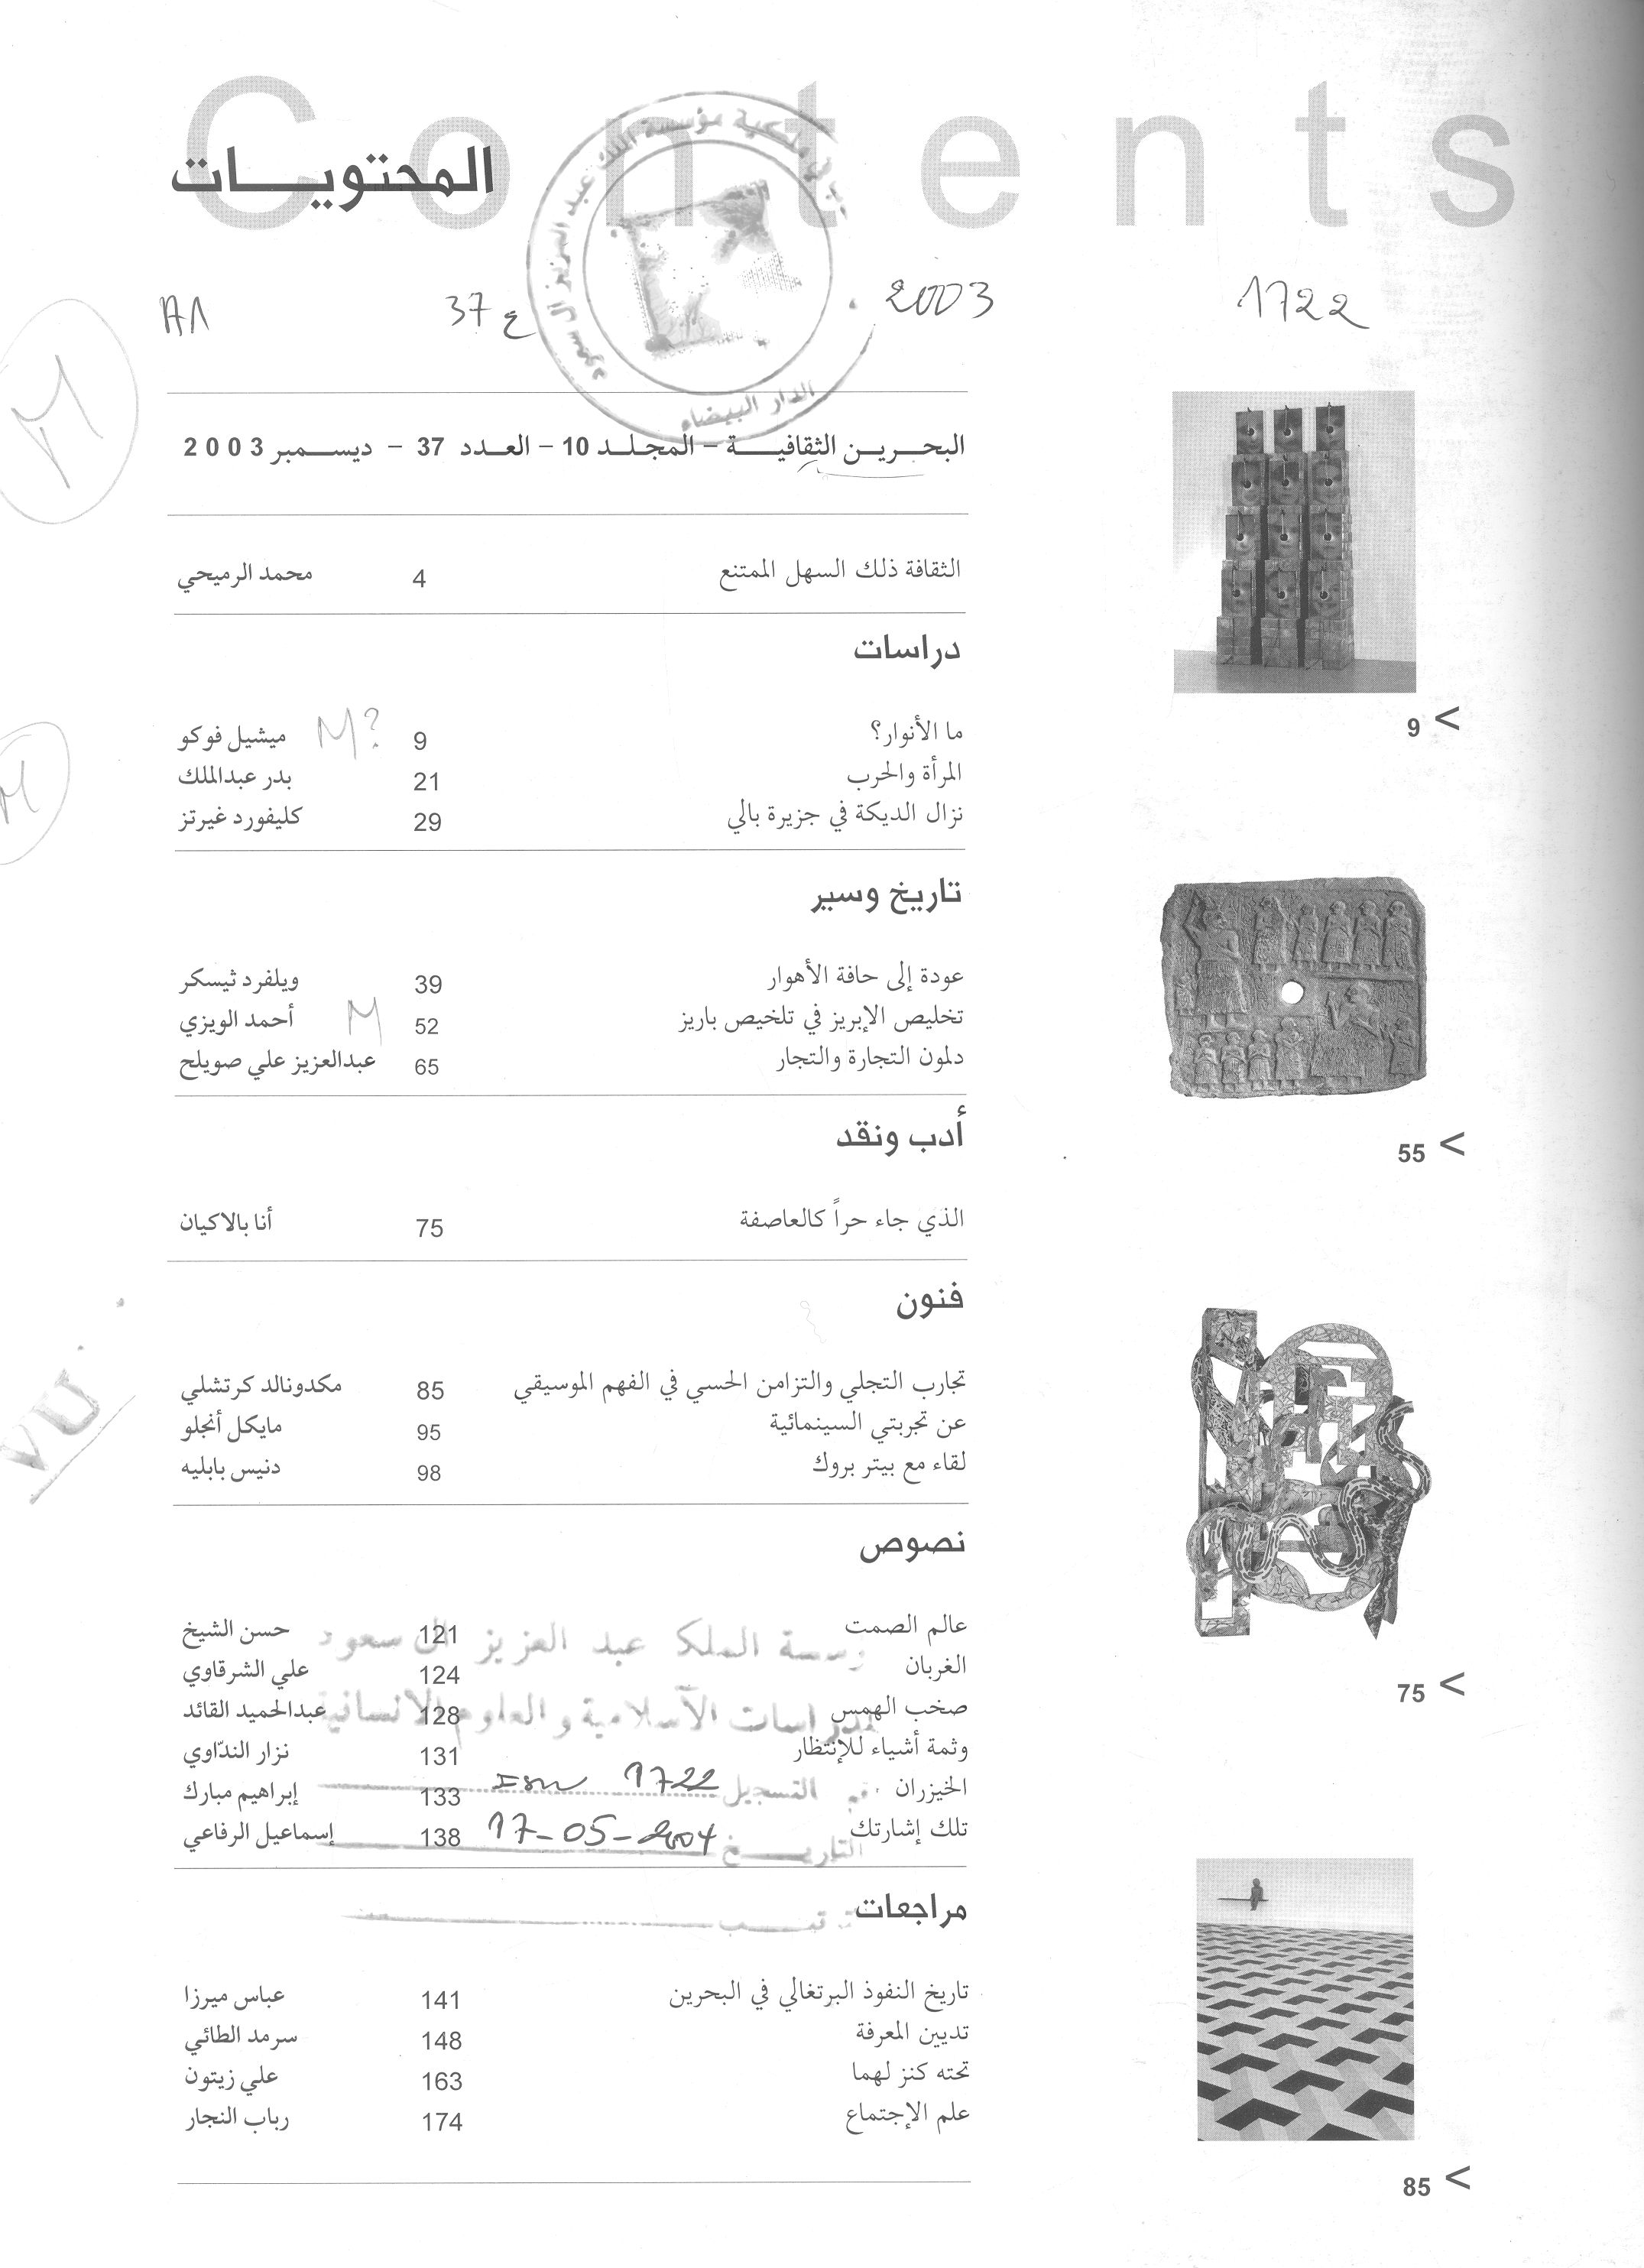 Contents
المحتويات
A1 37 ع 2003 1722
مؤسسة الملك عبد العزيز آل سعود
الدار البيضاء
البحرين الثقافية – المجلد 10 – العدد 37 – ديسمبر 2003
الثقافة ذلك السهل الممتنع 4 محمد الرميحي
دراسات
ما الأنوار؟ 9 M? ميشيل فوكو
المرأة والحرب 21 بدر عبدالملك
نزال الديكة في جزيرة بالي 29 كليفورد غيرتز
تاريخ وسير
عودة إلى حافة الأهوار 39 ويلفرد ثيسكر
تخليص الإبريز في تلخيص باريز 52 M أحمد الويزي
دلمون التجارة والتجار 65 عبدالعزيز علي صويلح
أدب ونقد
الذي جاء حراً كالعاصفة 75 أنا بالاكيان
فنون
تجارب التجلي والتزامن الحسي في الفهم الموسيقي 85 مكدونالد كرتشلي
عن تجربتي السينمائية 95 مايكل أنجلو
لقاء مع بيتر بروك 98 دنيس بابليه
نصوص
عالم الصمت 121 حسن الشيخ
الغربان 124 علي الشرقاوي
صخب الهمس 128 عبدالحميد القائد
وثمة أشياء للإنتظار 131 نزار الندّاوي
الخيزران 133 إبراهيم مبارك
تلك إشارتك 138 إسماعيل الرفاعي
الملك عبد العزيز آل سعود
للدراسات الاسلامية و العلوم الانسانية
التسجيل 1722
التاريخ 17-05-2004
مراجعات
تاريخ النفوذ البرتغالي في البحرين 141 عباس ميرزا
تديين المعرفة 148 سرمد الطائي
تحته كنز لهما 163 علي زيتون
علم الإجتماع 174 رباب النجار
9 >
55 >
75 >
85 >
M
M
VU